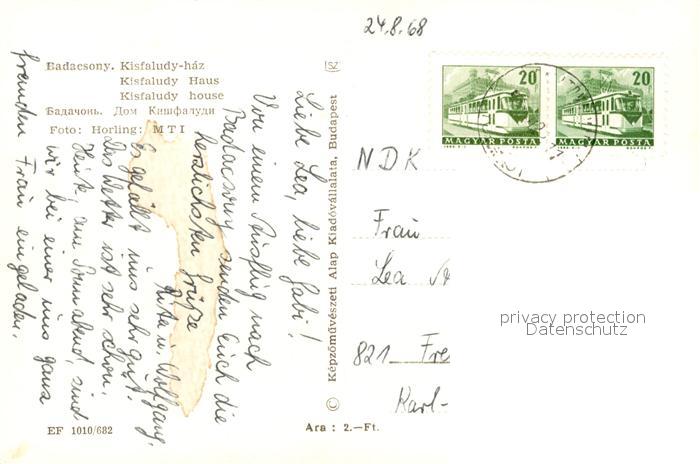 24.8.68
Badacsony. Kisfaludy-ház
Kisfaludy Haus
Kisfaludy house
Бадачонь. Дом Кишфалуди
Foto: Horling: MTI
SZ
Liebe Lea, liebe Gabi!
Von einem Ausflug nach
Badacsony senden Euch die
herzlichsten Grüße
Rita u. Wolfgang.
Es gefällt uns sehr gut.
Das Wetter ist sehr schön.
Heute, am Sonnabend, sind
wir bei einer uns ganz
fremden Frau eingeladen.
© Képzőművészeti Alap Kiadóvállalata, Budapest
20f
MAGYAR POSTA
20f
MAGYAR POSTA
NDK
Frau
Lea
821 Fre
Karl-
privacy protection
Datenschutz
EF 1010/682
Ára : 2.–Ft.